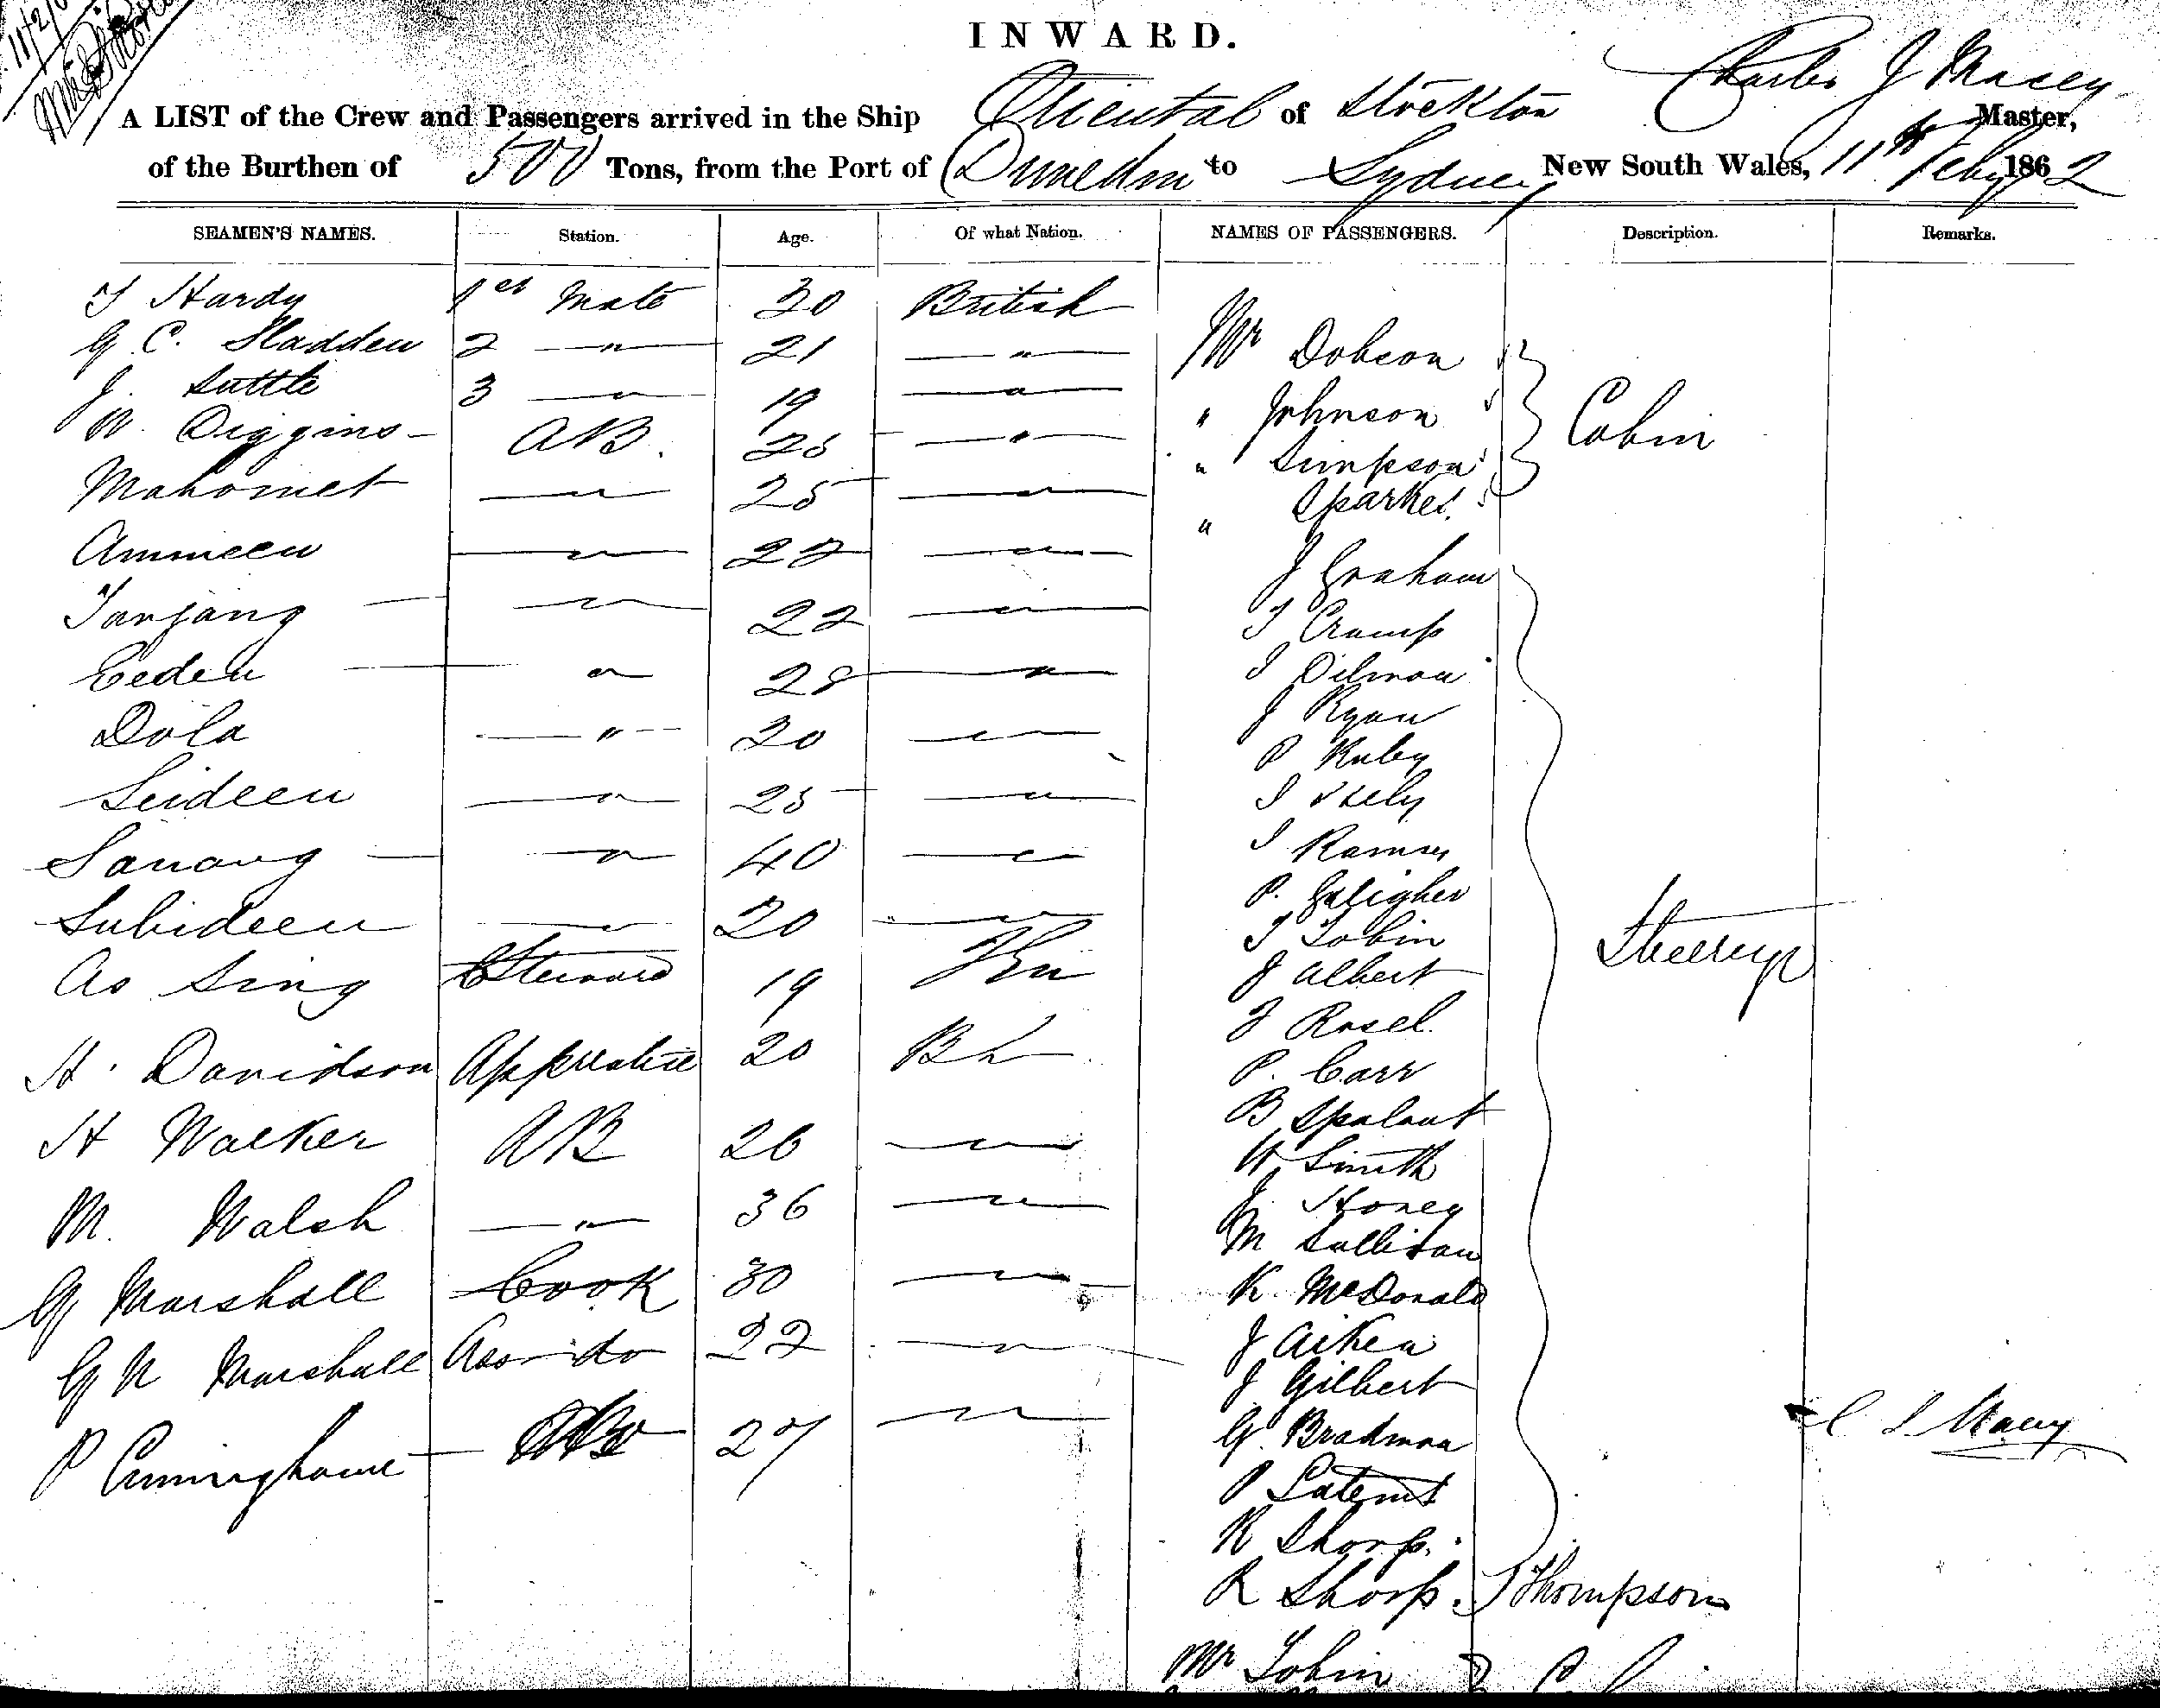 11/2/6
INWARD.
Charles J Macey
A LIST of the Crew and Passengers arrived in the Ship Oriental of Stockton Master,
of the Burthen of 500 Tons, from the Port of Dunedin to Sydney New South Wales, 11th Feby 1862
SEAMEN'S NAMES. Station. Age. Of what Nation. NAMES OF PASSENGERS. Description. Remarks.
T Hardy 1st Mate 30 British
G. C. Sladden 2 — " — 21 — " —
J. Suttle 3 — " — 19 — " —
W. Diggins AB. 25 — " —
Mahomet — " — 25 — " —
Ammeen — " — 22 — " —
Tanjang — " — 22 — " —
Eeden — " — 28 — " —
Dola — " — 30 — " —
Seideen — " — 25 — " —
Sanang — " — 40 — " —
Subideen — " — 20 — " —
As Sing Steward 19
H. Davidson Apprentice 20 Bh
H Walker AB 26 — " —
M. Walsh — " — 36 — " —
G Marshall Cook 30 — " —
G N Marshall Ass do 22 — " —
P Cunninghame 27 — " —
Mr Dobson
" Johnson
" Simpson
" Sparkes
Cabin
J Graham
T Crump
J Dilmon
J Ryan
P Ruby
J
J
P. Galigher
T Tobin
J Albert
J Rosel
P. Carr
B Spalant
W Smith
J Honey
M Sullivan
K. McDonald
J Aiken
J Gilbert
G. Bradman
P
R Sharp.
R Sharp. J Thompson
Steerage
C J Macey
Mr Tobin